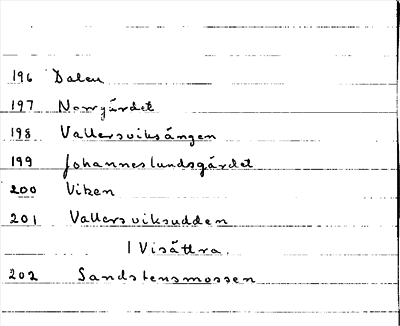 196 Dalen
197 Norrgärdet
198 Vallersviksängen
199 Johanneslundsgärdet
200 Viken
201 Vallersviksudden
I Visättra.
202 Sandstensmossen